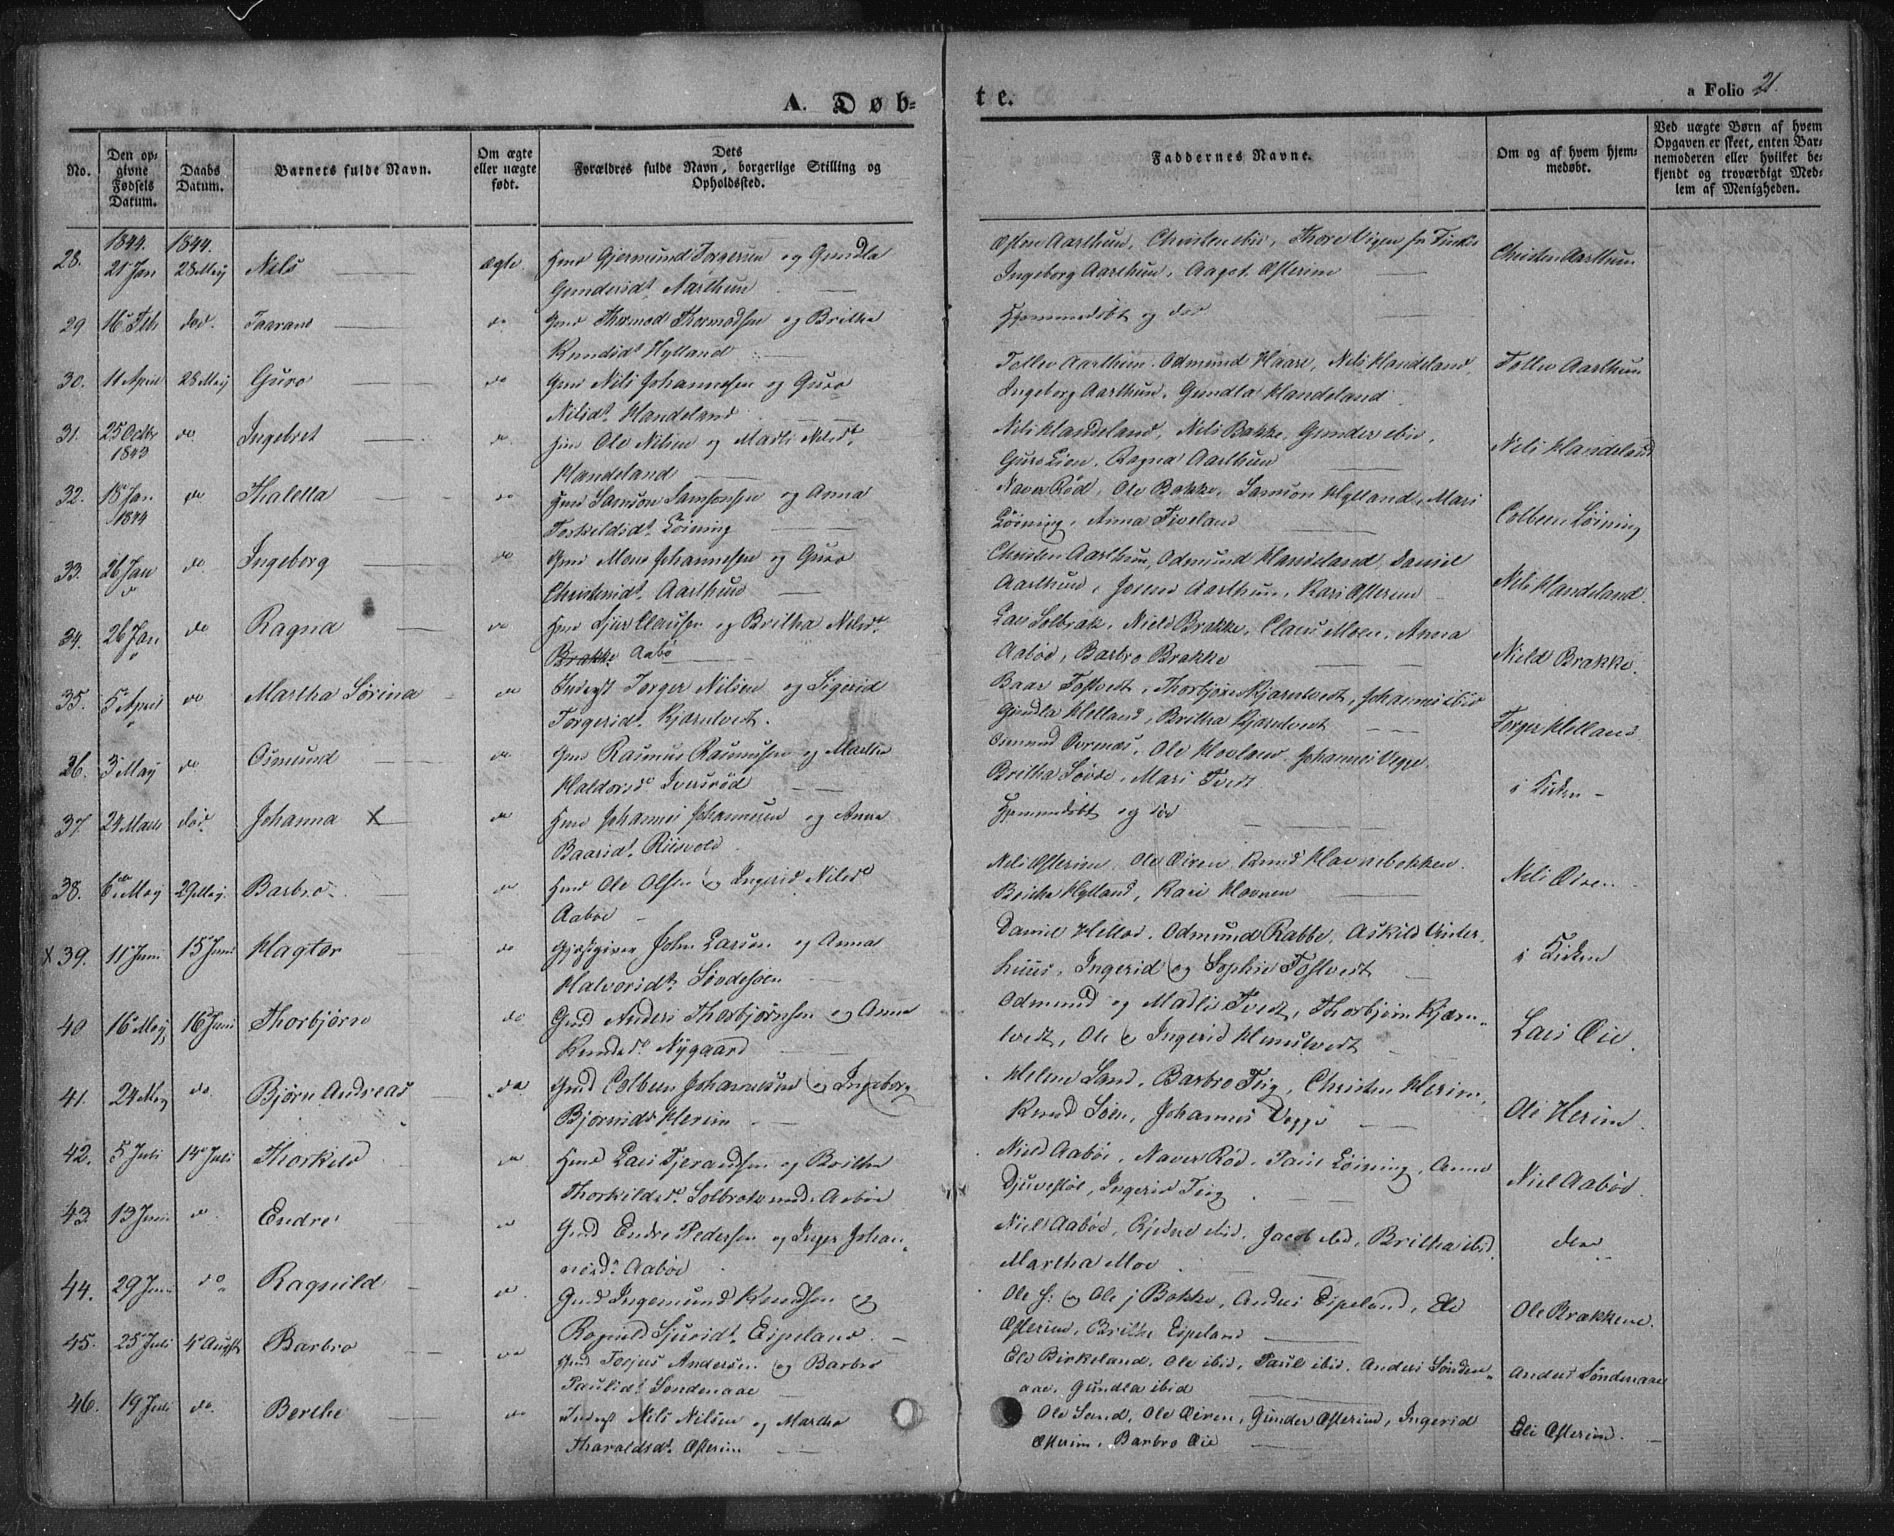 A. Døb-
te.
a Folio 21.
No.
Den op-
givne
Fødsels
Datum.
Daabs
Datum.
Barnets fulde Navn.
Om ægte
eller uægte
født.
Dets
Forældres fulde Navn, borgerlige Stilling og
Opholdssted.
Faddernes Navne.
Om og af hvem hjem-
medøbt.
Ved uægte Børn af hvem
Opgaven er skeet, enten Bar-
nemoderen eller hvilket be-
kjendt og troværdigt Med-
lem af Menigheden.
1844. 1844.
28. 21 Jan 28 Maij Nils ægte. Gjermund Torgersen og Gundla
Gundersdt. Aarthun
Aarthun, Christen ibid, Thore Vigen
Ingeborg Aarthun, Aagot Østerim
Christen Aarthun
29 16 Feb død. Taaran do Thormod Thormodsen og Britha
Knudsdt Hylland
Hjemmedøbt og død
30. 11 April 28 Maij Guro do Nils Johannesen og Guro
Nilsdt. Handeland
Tollev Aarthun. Odmund Haare, Nils Handeland,
Ingeborg Aarthun, Gundla Handeland
Tollev Aarthun
31. 25 Octbr do Ingebret do. Ole Nilsen og Madli Nilsdt.
1843
Handeland
Nils Handeland, Nils Bakke, Gunder ibid,
Guro Lien, Ragna Aarthun
Nils Handeland
32. 18 Jan do Thaletta do Samson Samsonsen og Anna
1844
Torkeldsdt. Løining
Naver Rød, Ole Bakke, Samson Hylland, Mari
Løining, Anna Fiveland
Colbeen Løining
33. 26 Jan do. Ingeborg do Mons Johannesen og Guro
Christensdt. Aarthun
Christen Aarthun, Odmund Handeland, Daniel
Aarthun, Aarthun, Kari Østerim
Nils Handeland.
34. 26 Jan do Ragna do Sjur Clausen og Britha Nilsdt.
Brakke Aabø
Lars Solbrak, Niels Brakke, Claus Moen, Anna
Aabøe, Barbro Brakke
Nield Brakke.
35. 5 April do Martha Sørina do Inderst Torger Nilsen og Sigerid
Torgersdt. Kjærntvedt.
Baar Tostvedt, Thorbjørn Kjærntvedt, Johannes ibid
Gundla Helland, Britha Kjærntvedt
Torger Helland.
36. 3 Maij do Osmund do Rasmus Rasmussen og Martha
Haldorsdt Iversrød
Osmund Ole Hovland. Johannes Vegge.
Britha Søvde, Mari Tvedt
i Kirken
37. 24 Marts død. Johanna X do Johannes Johannesen og Anna
Baarsdt. Riisvold
Hjemmedøbt og død
38. 6 Maij 29 Maij. Barbro do Ole Olsen og Ingerid Nilsdt
Aabøe
Nils Østerim, Ole Øiren, Knud Havnebakken
Britha Hylland, Kari Havnen
Nils Øiren
X 39. 11 Juni 15 Juni Hagtor do Gjæstgiver John Larsen og Anna
Halvorsdt. Søvdesøen
Daniel Odmund Rabbe, Askild Vinter-
huus, Ingerid og Sophie Tostvedt
i Kirken
40 16 Maij 16 Juni Thorbjørn do Gmd Anders Thorbjørnsen og Anna
Knudsdt. Nygaard
Odmund og Madli Tvedt, Thorbjørn Kjærn-
tvedt, Ole og Ingerid Knutvedt
Lars Øie.
41. 24 Maij do. Bjørn Andreas do Gmd Colbeen Johannesen og Ingeborg
Bjørnsdt Herim
Helene Sand, Barbro Teig, Christen Herim,
Knud Søen, Johannes Vegge
Ole Herim.
42. 5 Juli 14 Juli Thorkild do Lars Tjerandsen og Britha
Thorkildsdt. Solbrak Aabøe
Niels Aabøe, Naver Rød, Paul Løining, Anna
Djuvestøl, Ingerid Teig
Niel Aabød.
43. 13 Juni do. Endre do Gmd Endre Pedersen og Inger Johan-
nesdt. Aabøe
Niels Aabøe, ibid. Jacob ibid, Britha ibid.
Martha Moe
44. 29 Juni do Ragnild do. Gmd Ingemund Knudsen og
Ragnild Sjursdt. Eipeland
Ole og Ole Bakke, Anders Eipeland, Ole
Østerim, Britha Eipeland
Ole Brækkene.
45. 25 Juli 4 Augst Barbro do Gmd Tosjus Andersen og Barbro
Paulsdt. Søndenaae
Ole Birkeland, Ole ibid, Paul ibid, Anders Sønden-
aae, Gundla ibid
Anders Søndenaae
46. 19 Juli do. Berthe do Inderst Nils Nilsen og Martha
Tharaldsdt. Østerim
Ole Sand, Ole Øiren, Gunder Østerim, Ingerid
Østerim, Barbro Øie
Østerim.